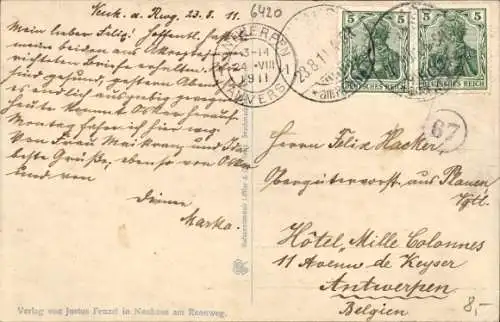 Neuh. a. Rwg. 23.8.11.
Mein lieber Felix! Hoffentl. hast
meine beiden am
richteten Briefe erhalten.
sind gesund, gestern Abend
es endlich ausgiebig geregnet
heute kommt Oskar herauf
Montag fahren ich hier weg.
Von Frau und Ida
beste Grüße, ebenso von Oskar
und von
Deinem
Marko.
6420
ANTWERPEN
13-14
24 VIII
1911
ANVERS
1
23.8.11
5 5
DEUTSCHES REICH DEUTSCHES REICH
67
Herrn Felix Hacker
Obergütervorst. aus Plauen
Vgtl.
Hôtel Mille Colonnes
11 Avenue de Keyser
Antwerpen
Belgien
8,-
Verlag von Justus Fenzel in Neuhaus am Rennweg.